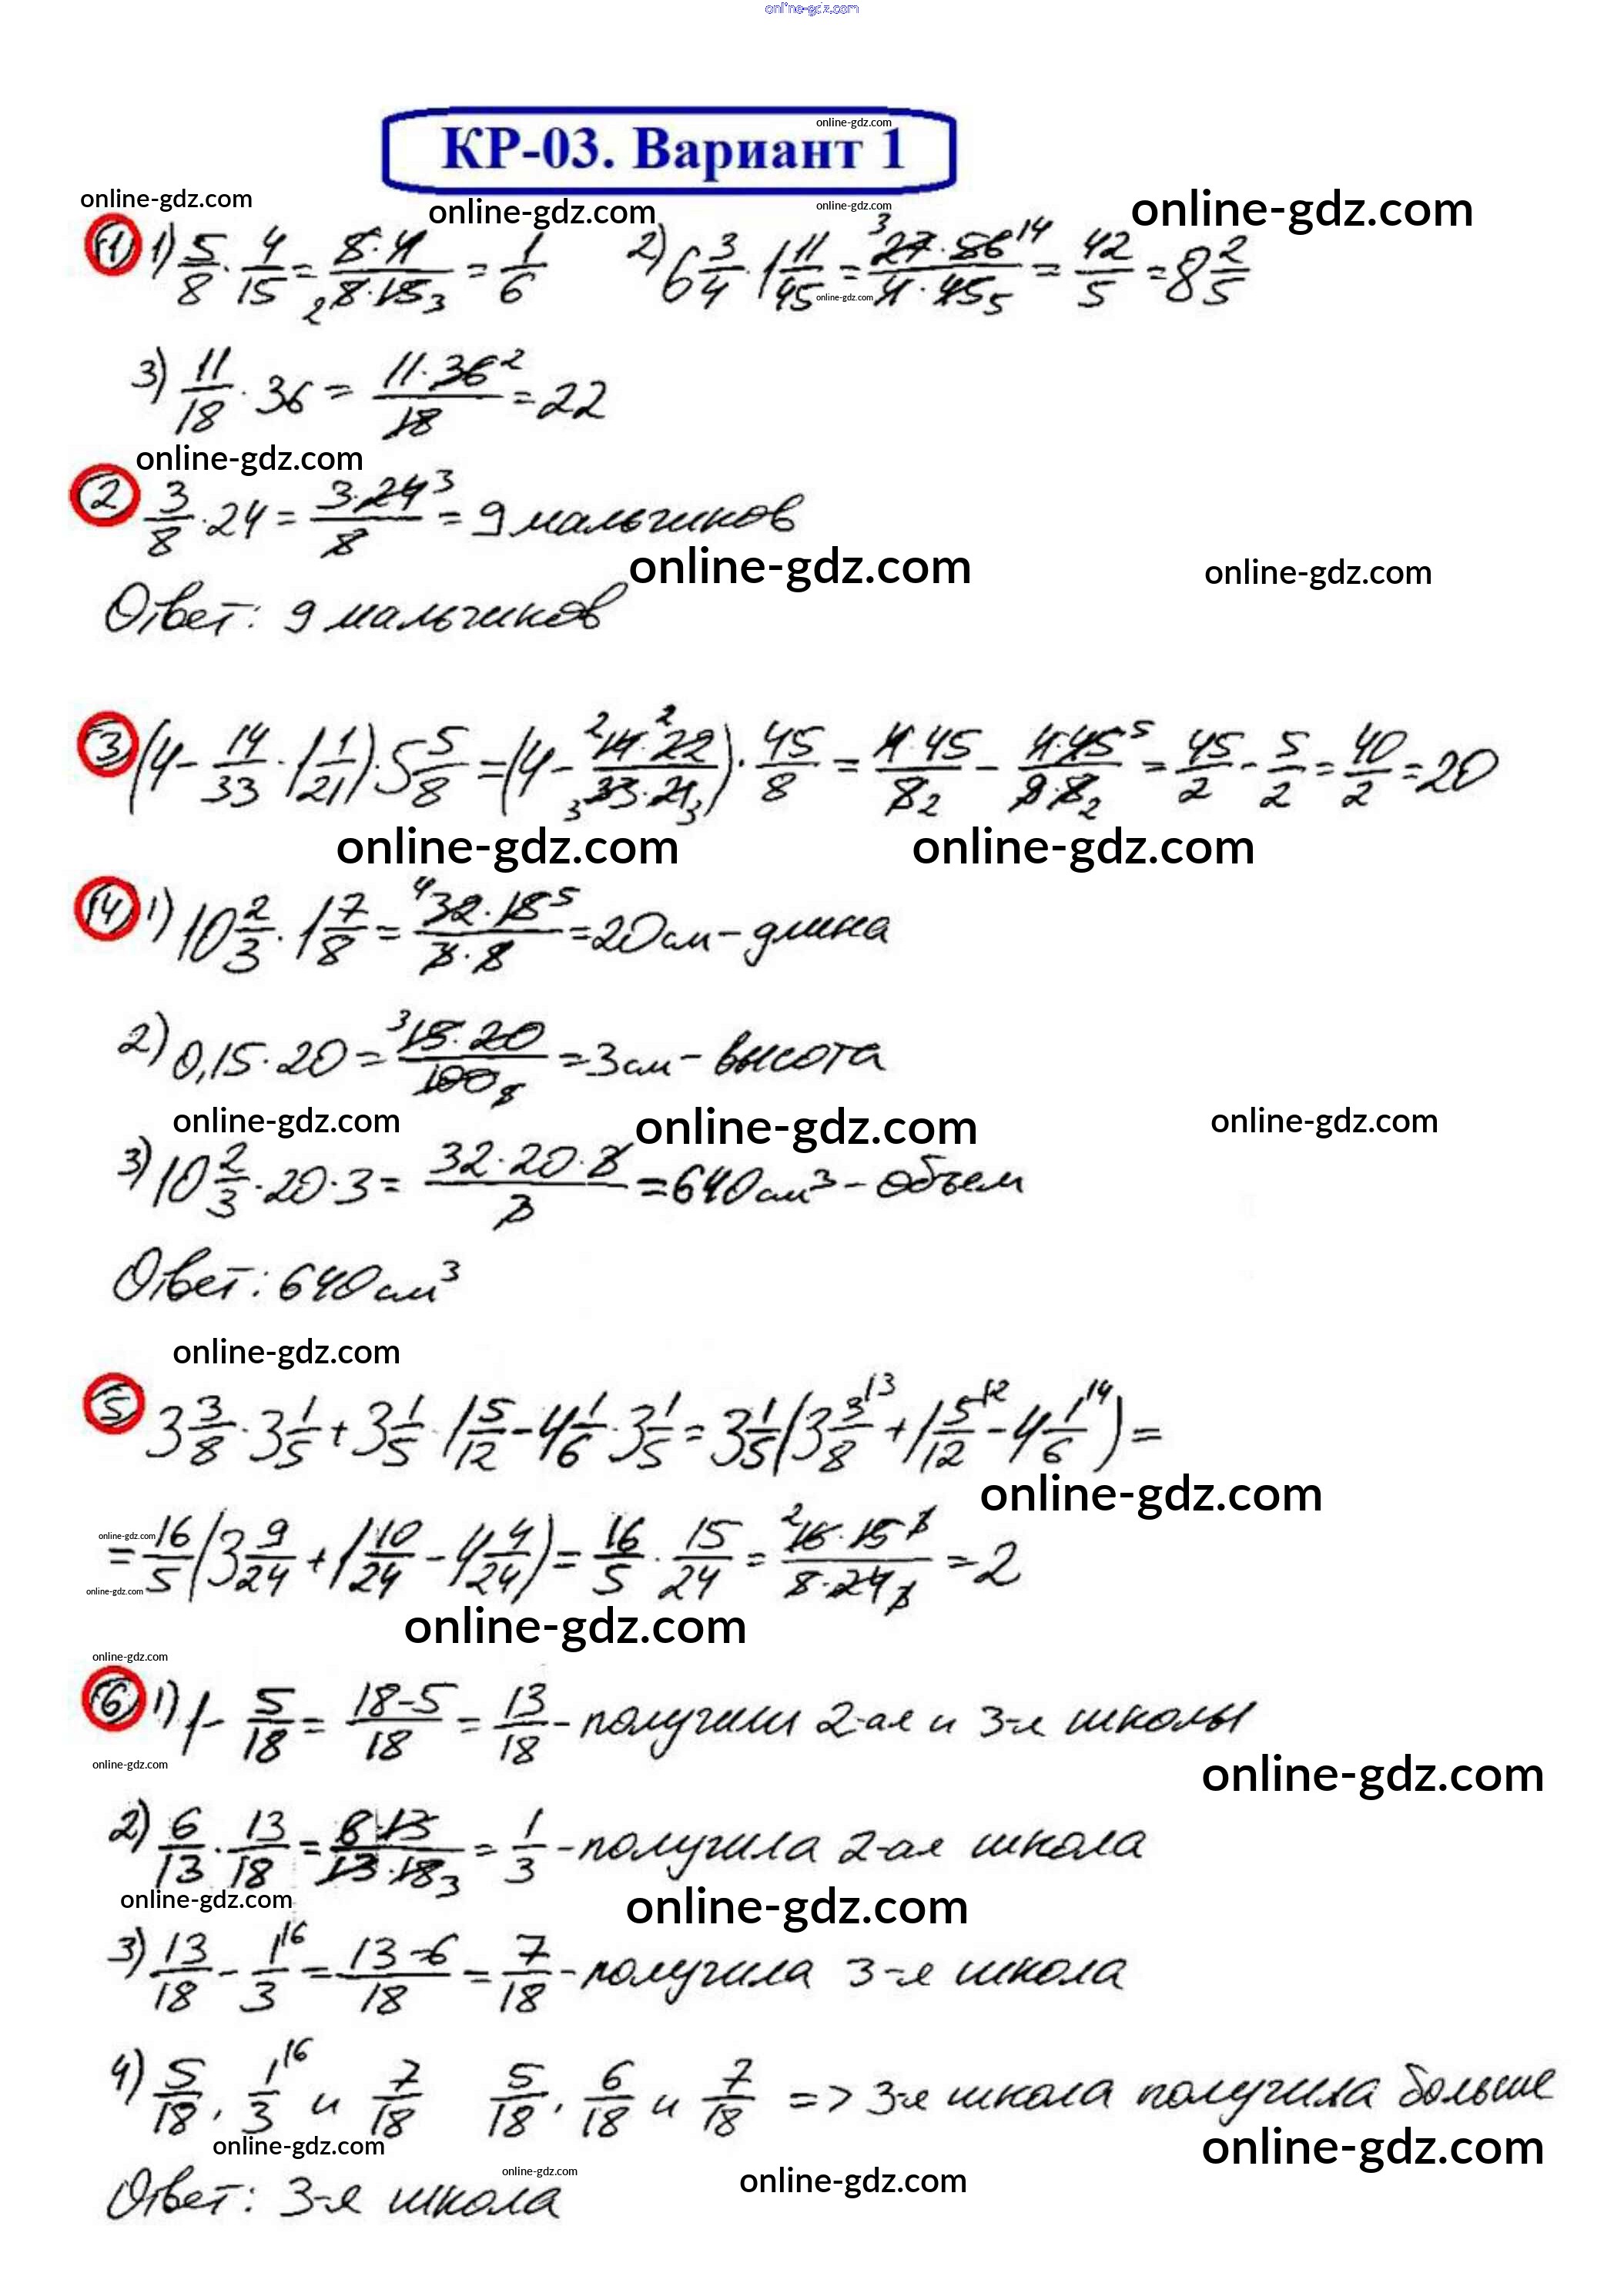 online-gdz.com
КР-03. Вариант 1
online-gdz.com
online-gdz.com online-gdz.com online-gdz.com online-gdz.com
1 1) 5/8 · 4/15 = 5·4/8·15 = 1/6 2) 6 3/4 · 1 11/45 = 27·56/4·45 = 42/5 = 8 2/5
online-gdz.com
3) 11/18 · 36 = 11·36/18 = 22
online-gdz.com
2 3/8 · 24 = 3·24/8 = 9 мальчиков
online-gdz.com online-gdz.com
Ответ: 9 мальчиков
3 (4 - 14/33 · 1 1/21) · 5 5/8 = (4 - 14·22/33·21) · 45/8 = 4·45/8 - 4·45/9·8 = 45/2 - 5/2 = 40/2 = 20
online-gdz.com online-gdz.com
4 1) 10 2/3 · 1 7/8 = 32·15/3·8 = 20 см - длина
2) 0,15 · 20 = 15·20/100 = 3 см - высота
online-gdz.com online-gdz.com online-gdz.com
3) 10 2/3 · 20 · 3 = 32·20·3/3 = 640 см³ - объем
Ответ: 640 см³
online-gdz.com
5 3 3/8 · 3 1/5 + 3 1/5 · 1 5/12 - 4 1/6 · 3 1/5 = 3 1/5 (3 3/8 + 1 5/12 - 4 1/6) =
online-gdz.com
online-gdz.com
= 16/5 (3 9/24 + 1 10/24 - 4 4/24) = 16/5 · 15/24 = 16·15/5·24 = 2
online-gdz.com
online-gdz.com
online-gdz.com
6 1) 1 - 5/18 = 18-5/18 = 13/18 - получили 2-ая и 3-я школы
online-gdz.com online-gdz.com
2) 6/13 · 13/18 = 6·13/13·18 = 1/3 - получила 2-ая школа
online-gdz.com online-gdz.com
3) 13/18 - 1/3 = 13-6/18 = 7/18 - получила 3-я школа
4) 5/18, 1/3 и 7/18 5/18, 6/18 и 7/18 => 3-я школа получила больше
online-gdz.com online-gdz.com
online-gdz.com online-gdz.com
Ответ: 3-я школа